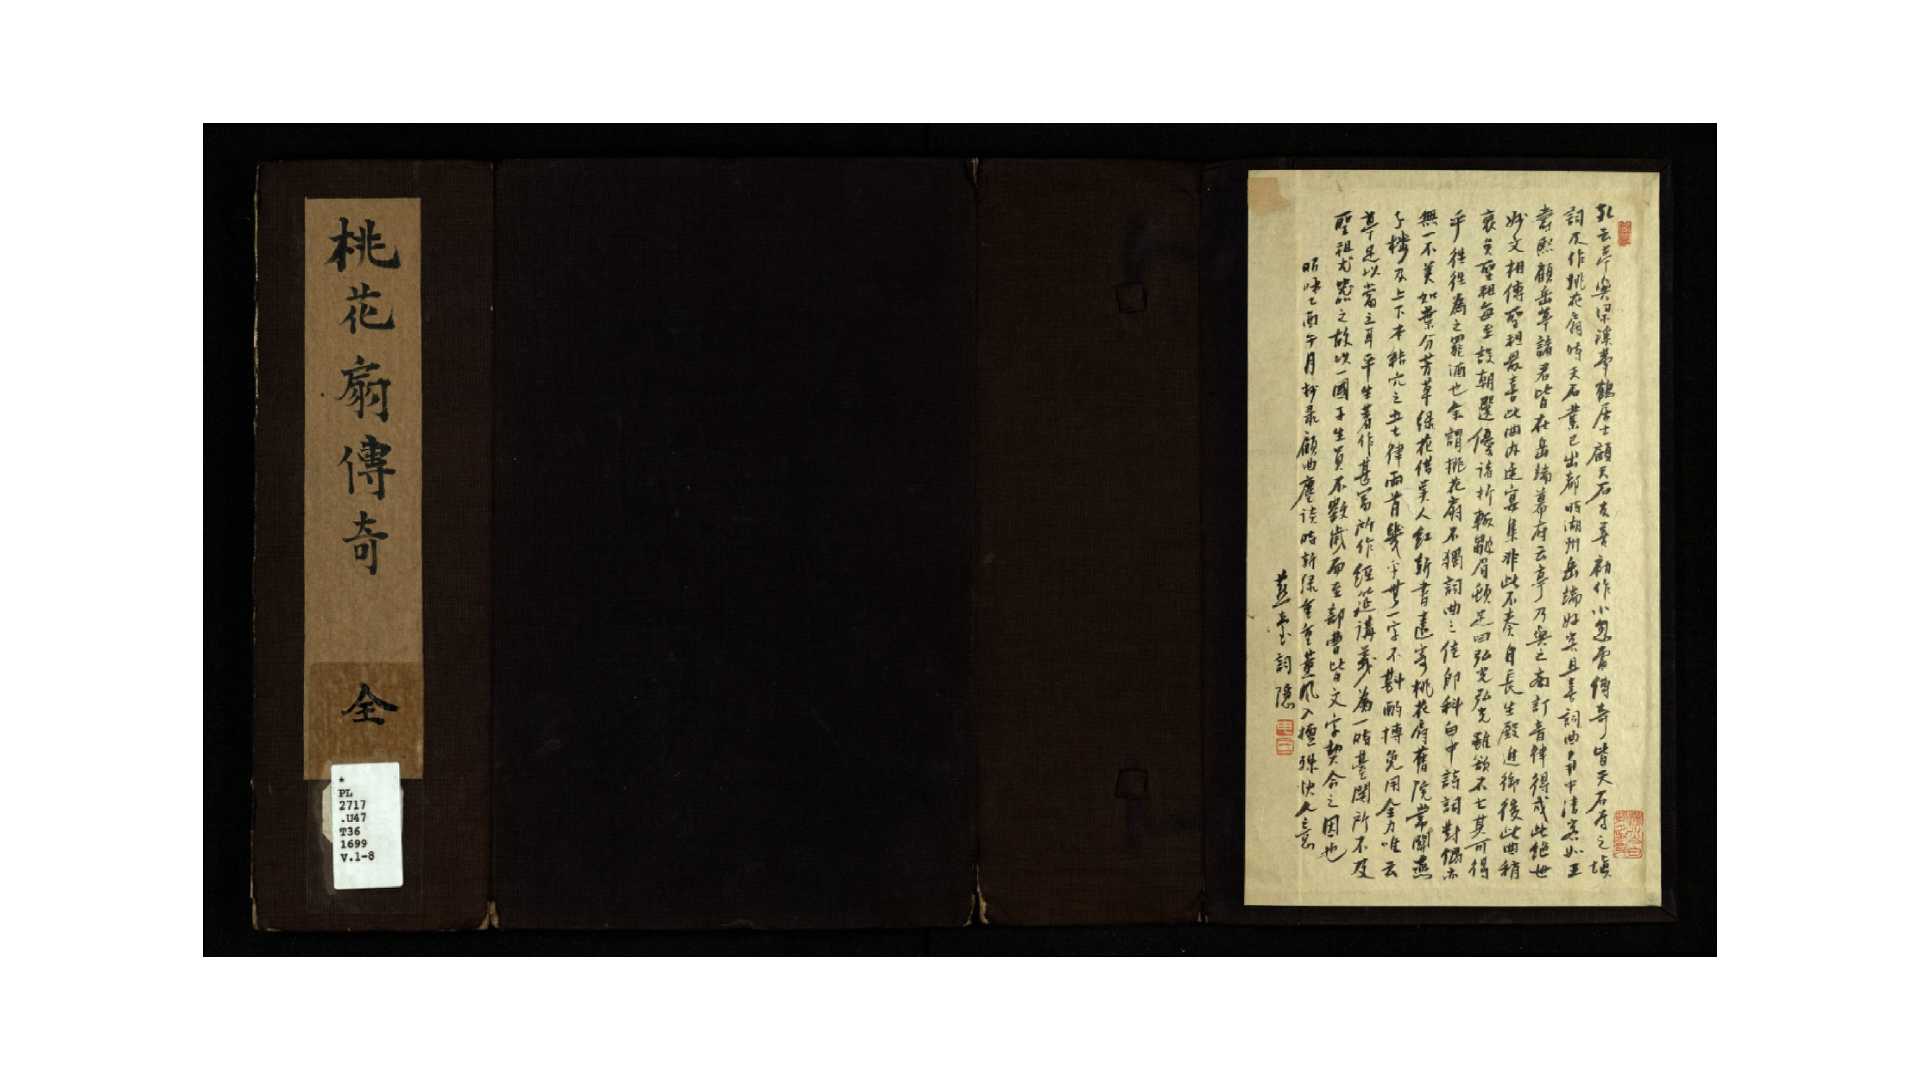 桃花扇傳奇
全
*
PL
2717
.U47
T36
1699
V.1-8
孔云亭與梁溪夢鶴居士顧天石友善初作小忽雷傳奇皆天石為之填
詞及作桃花扇時天石業已出都時湖州岳端好客且喜詞曲幕中清客如王
壽熙顧岳亭諸君皆在岳端幕府云亭乃與之商訂音律得成此絕世
妙文相傳聖祖最喜此曲內廷宴集非此不奏自長生殿進御後此曲稍
衰矣聖祖每至設朝選優諸折輒皺眉頓足曰弘光弘光雖欲不亡其可得
乎往往為之罷酒也余謂桃花扇不獨詞曲之佳即科白中詩詞對偶亦
無一不美如葉分芳草綠花借美人紅新書遠寄桃花扇舊院常關燕
子樓及上下本結穴之五七律兩首幾乎無一字不斟酌摶兔用全力唯云
亭足以當之耳平生著作甚富所作經筵講義為一時臺閣所不及
聖祖尤器之故以一國子生員不數歲而至部曹皆文字契合之固也
乙酉午月抄录顧曲麈談時新綠重重薰風入殊快人意
堂詞隱